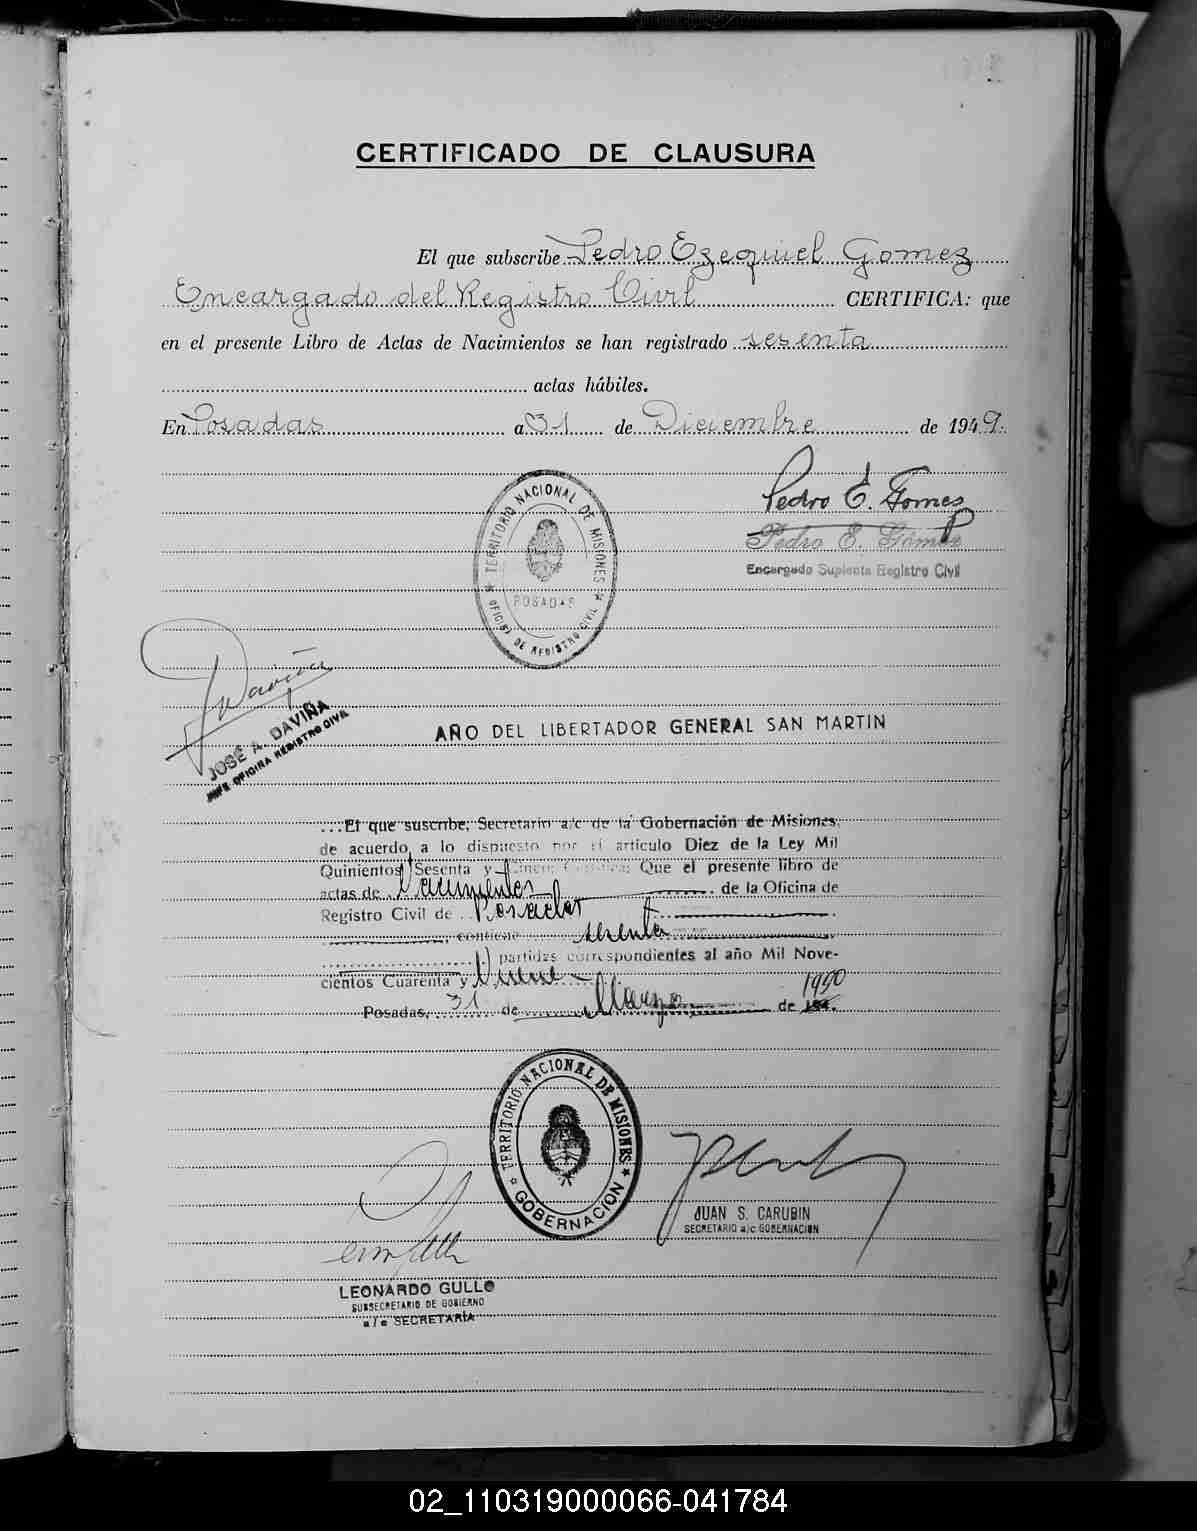 CERTIFICADO DE CLAUSURA
El que subscribe Pedro Ezequiel Gomez
Encargado del Registro Civil CERTIFICA: que
en el presente Libro de Actas de Nacimientos se han registrado sesenta
actas hábiles.
En Posadas a 31 de Diciembre de 1949.
Pedro E. Gomez
Pedro E. Gómez
Encargado Suplente Registro Civil
TERRITORIO NACIONAL DE MISIONES
POSADAS
OFICINA DE REGISTRO CIVIL
Daviña
JOSÉ A. DAVIÑA
JEFE OFICINA REGISTRO CIVIL
AÑO DEL LIBERTADOR GENERAL SAN MARTIN
...El que suscribe, Secretario a/c de la Gobernación de Misiones,
de acuerdo a lo dispuesto por el artículo Diez de la Ley Mil
Quinientos Sesenta y Cinco; Certifica: Que el presente libro de
actas de Nacimientos de la Oficina de
Registro Civil de Posadas
contiene sesenta
partidas correspondientes al año Mil Nove-
cientos Cuarenta y Nueve
Posadas, 31 de Marzo de 194. 1950
TERRITORIO NACIONAL DE MISIONES
GOBERNACIÓN
JUAN S. CARUBIN
SECRETARIO a/c GOBERNACION
LEONARDO GULLO
SUBSECRETARIO DE GOBIERNO
a/c SECRETARÍA
02_110319000066-041784